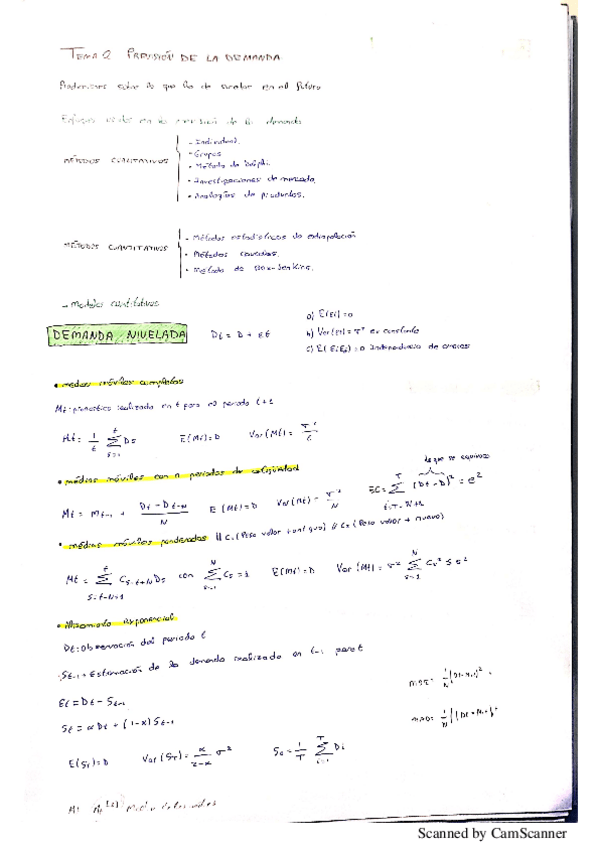 TEMA 2 PREVISIÓN DE LA DEMANDA
Predicciones sobre lo que ha de suceder en el futuro
Enfoques en la previsión de la demanda
MÉTODOS CUALITATIVOS
- Individual.
- Grupos
- Método de Delphi
- Investigaciones de mercado.
- Analogías de productos.
MÉTODOS CUANTITATIVOS
- Métodos estadísticos de extrapolación
- Métodos causales.
- Método de Box-Jenkins.
→ Modelos cuantitativos
DEMANDA NIVELADA Dt = D + Et
a) E(Et) = 0
b) Var(Et) = σ² es constante
c) = 0 Independencia de errores
• medias móviles completas
Mt: pronóstico realizado en t para el periodo t+1
Mt = 1/t Σ(s=1..t) Ds E(Mt) = D Var(Mt) = σ²/t
• medias móviles con n periodos de antigüedad
Mt = Mt-1 + (Dt - Dt-N)/N E(Mt) = D Var(Mt) = σ²/N
lo que se equivoca
• medias móviles ponderadas // C1 (Peso valor + antiguo) // (Peso valor + nuevo)
Mt = Σ Cs-t+N Ds con Σ(s=1..N) Cs = 1 E(Mt) = D
• Alisamiento exponencial
Dt: observación del periodo t
St-1: Estimación de la demanda realizada en t-1 para t
Et = Dt - St-1
St = α Dt + (1-α) St-1
E(St) = D Var(St) = α/(2-α) σ² S0 = 1/T Σ(i=1..T) Di
Scanned by CamScanner